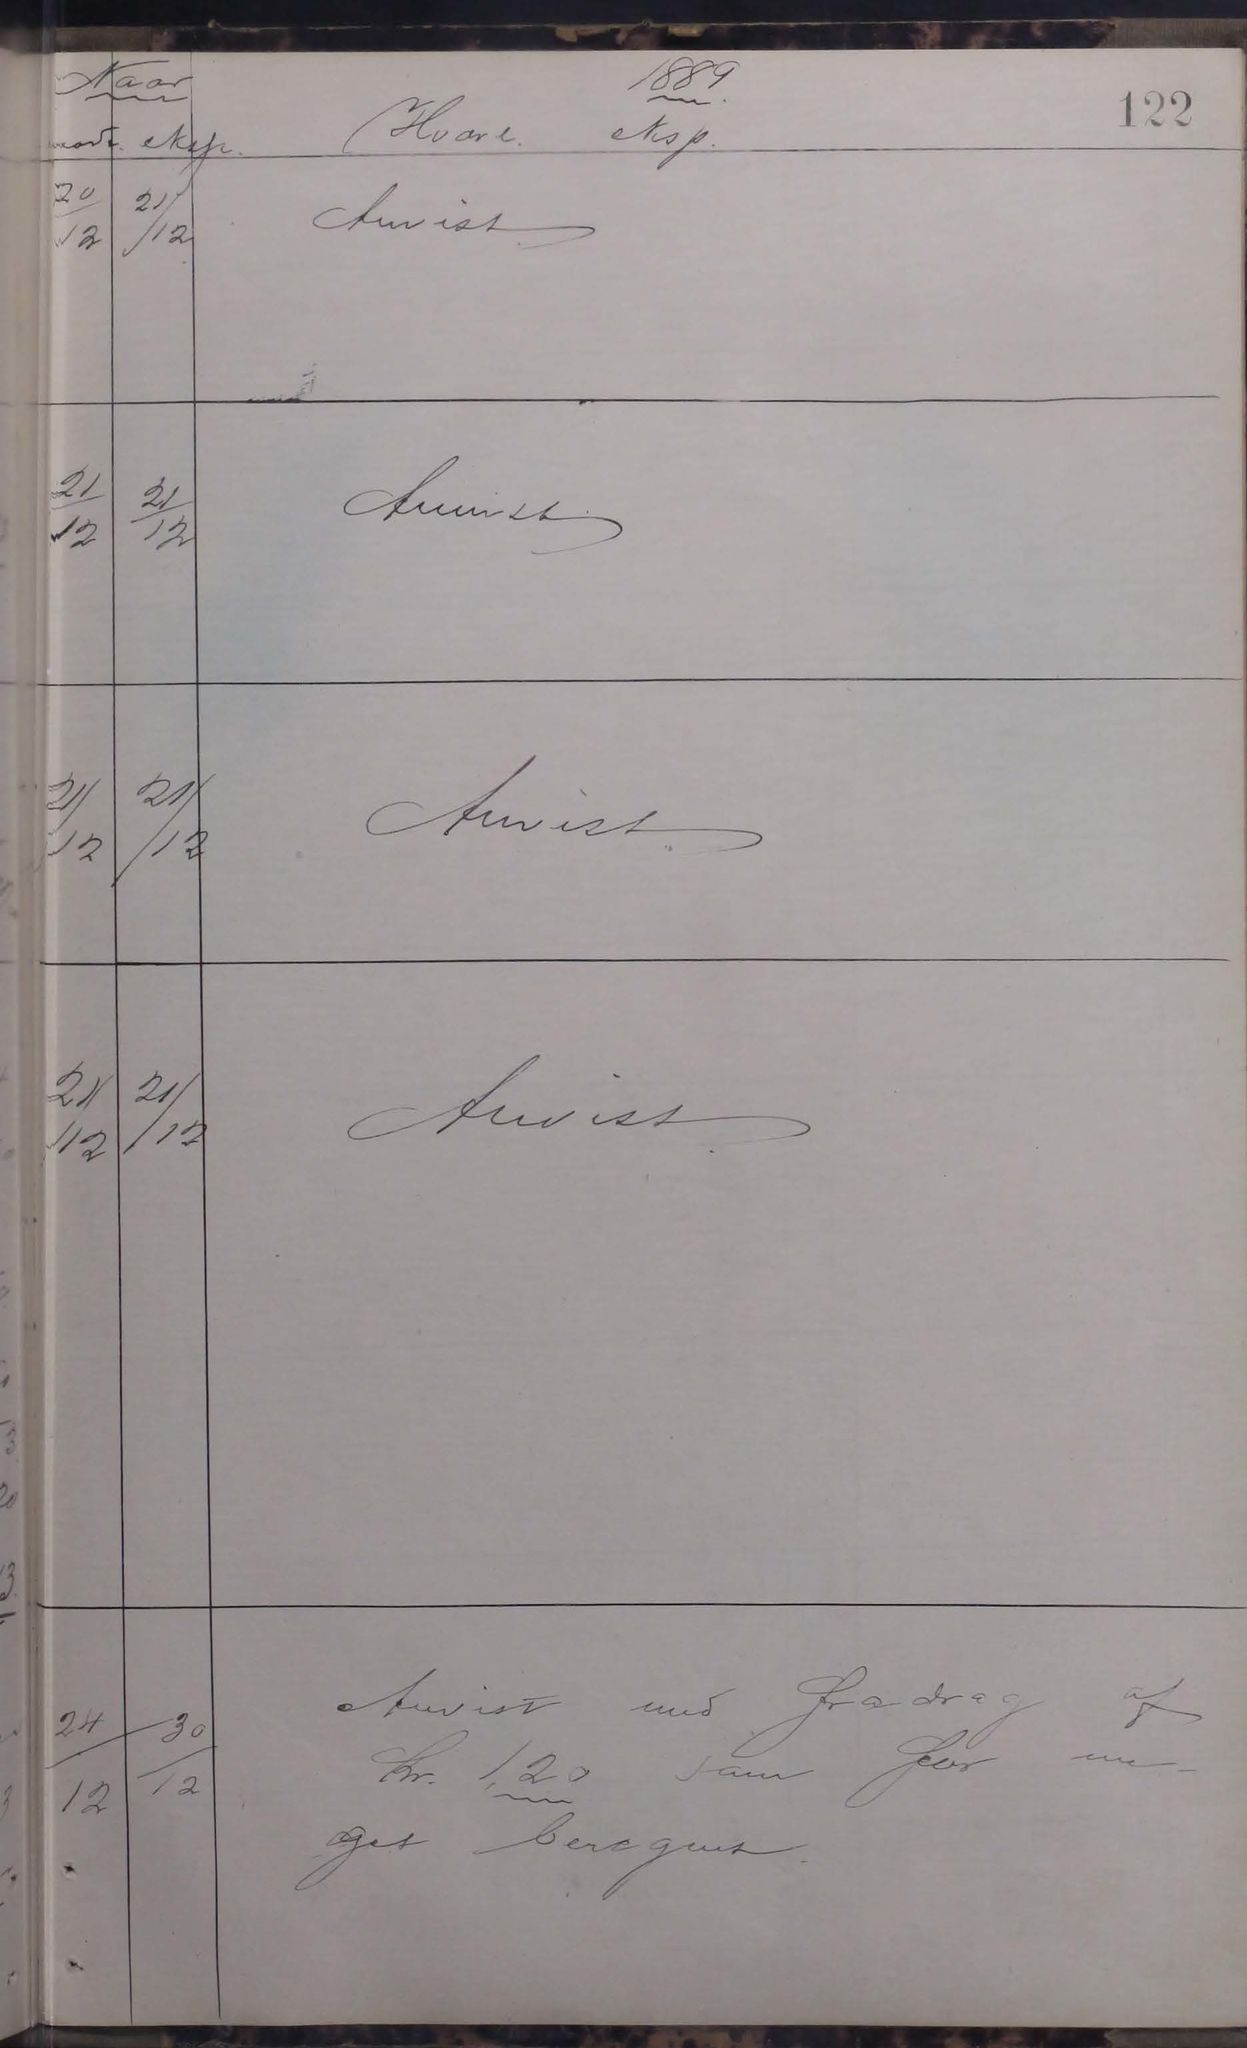 Naar 1889 122
modt. eksp. Hvorl. eksp.
20/12 21/12 Anvist
21/12 21/12 Anvist
21/12 21/12 Anvist
21/12 21/12 Anvist
24/12 30/12 Anvist med Fradrag af
Kr. 1,20 som for me-
get beregnet.